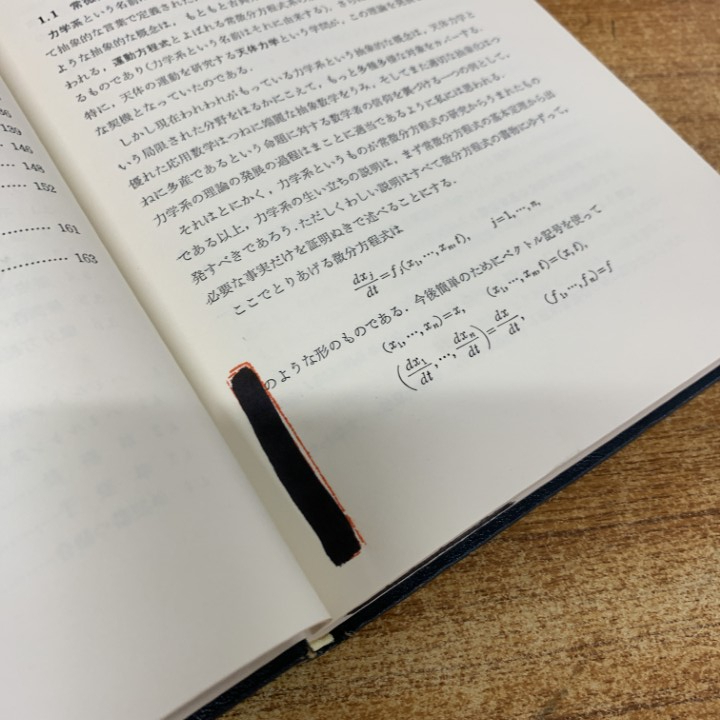 139
146
148
152
161
163
1.1
力学系という名前
て抽象的な言葉で定義された
ような抽象的な概念は，もともと
われる，運動方程式とよばれる常微分方程式
るものであり（力学系という名前はそれに由来する），
特に，天体の運動を研究する天体力学という学問が，この理論を発展
な契機となっていたのである．
しかし現在われわれがもっている力学系という抽象的な概念は，天体力学と
いう局限された分野をはるかにこえて，もっと多種多様な対象をカバーする．
優れた応用数学はつねに綺麗な抽象数学をうみ，そしてまた適切な抽象化はつ
ねに多産であるという命題に対する数学者の信仰を裏づける一つの例として，
力学系の理論の発展の過程はまことに適当であるように私には思われる．
それはとにかく，力学系というものが常微分方程式の研究からうまれたもの
である以上，力学系の生い立ちの説明は，まず常微分方程式の基本定理から出
発すべきであろう．ただしくわしい説明はすべて微分方程式の書物にゆずって，
必要な事実だけを証明ぬきで述べることにする．
ここでとりあげる微分方程式は
dx_j/dt=f_j(x₁,…,x_n,t), j=1,…,n,
のような形のものである．今後簡単のためにベクトル記号を使って
(x₁,…,x_n)=x, (x₁,…,x_n,t)=(x,t),
(dx₁/dt,…,dx_n/dt)=dx/dt, (f₁,…,f_n)=f